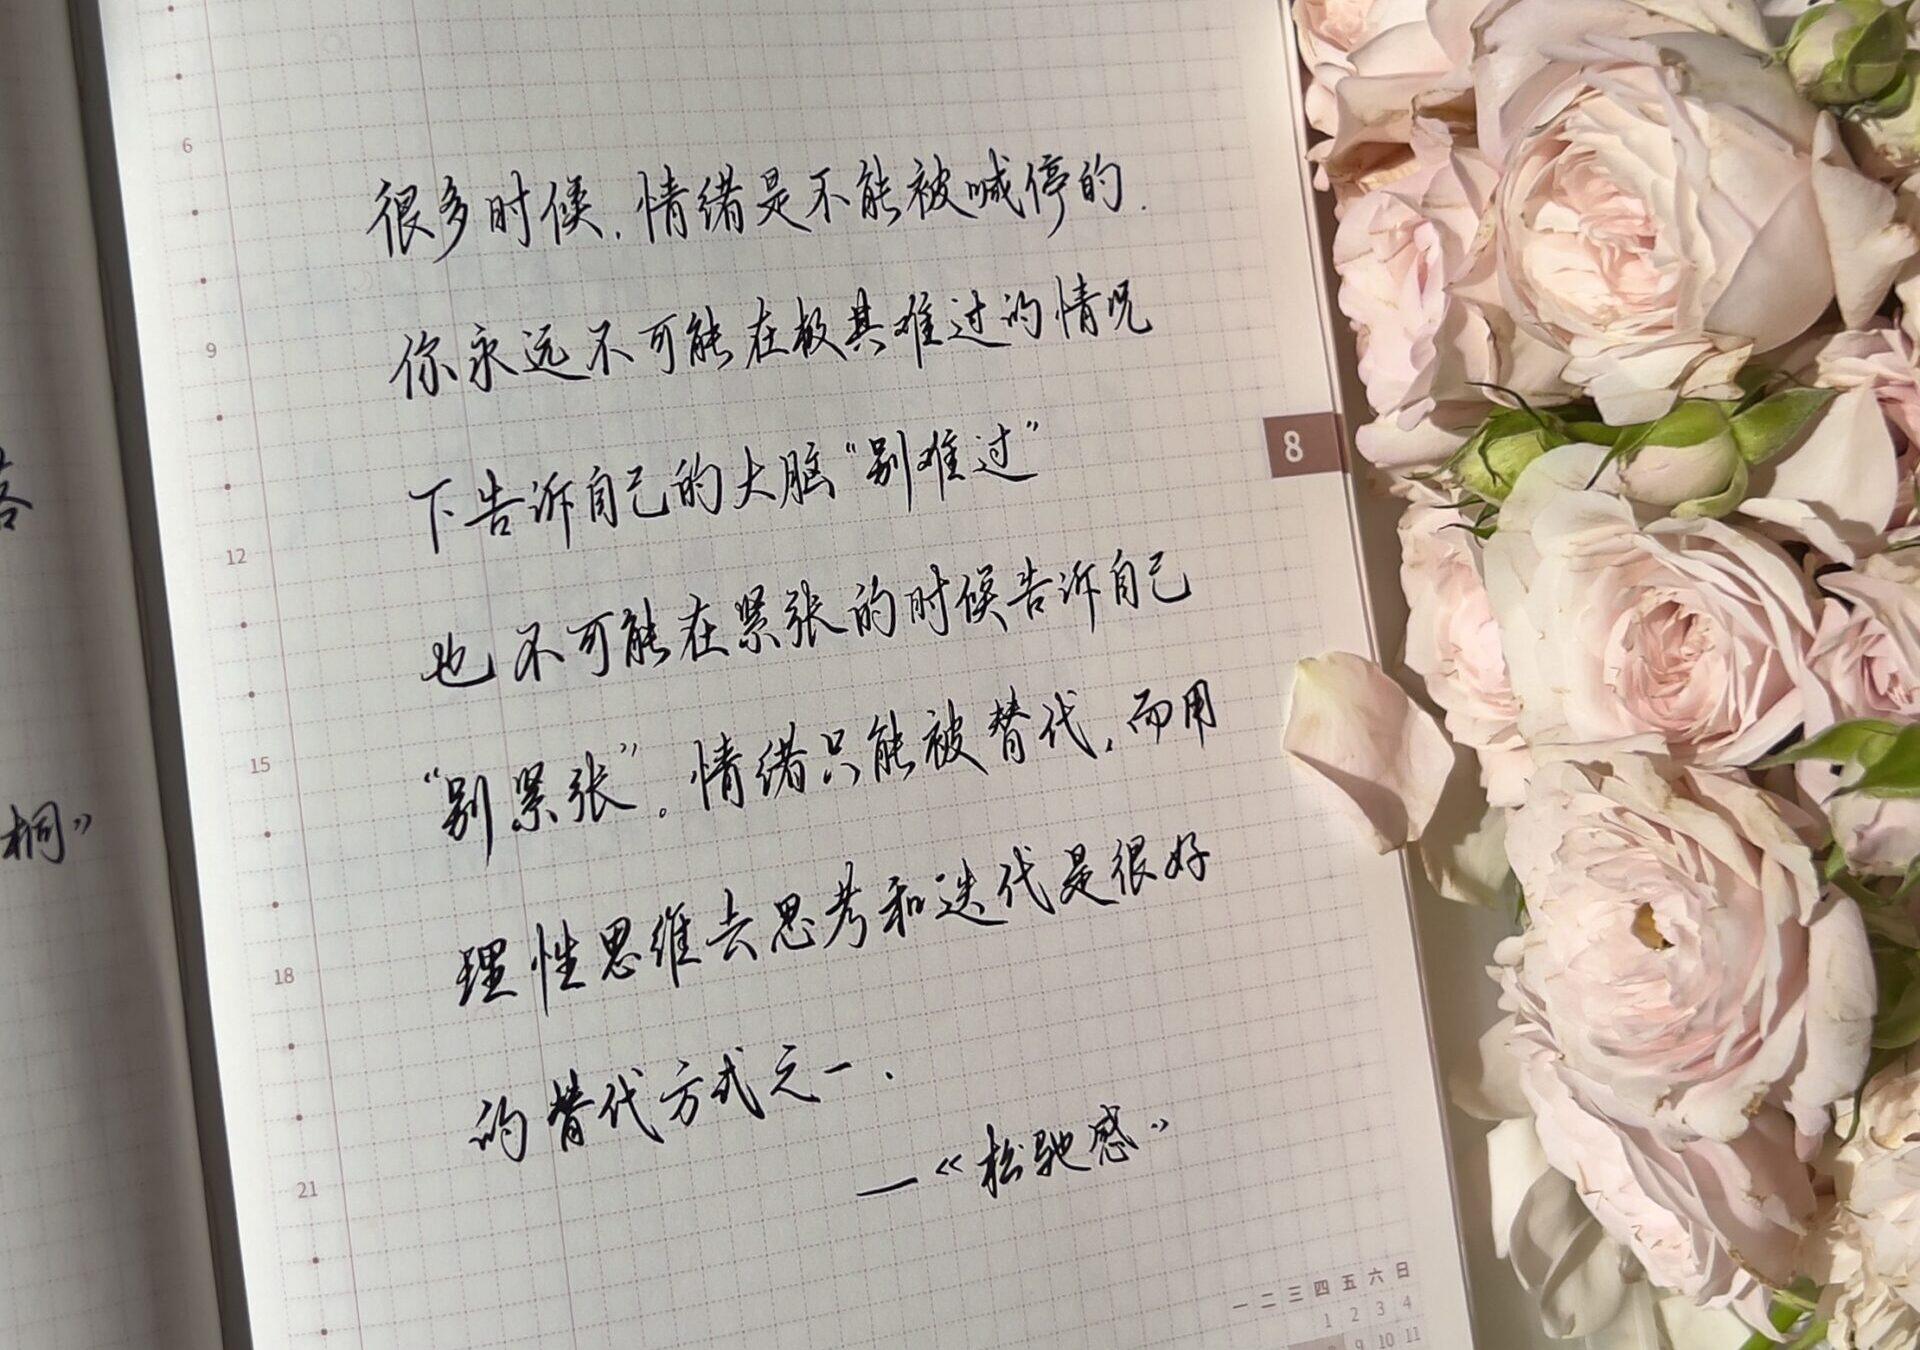 很多时候.情绪是不能被喊停的.
你永远不可能在极其难过的情况
下告诉自己的大脑“别难过”
也不可能在紧张的时候告诉自己
“别紧张”。情绪只能被替代,而用
理性思维去思考和迭代是很好
的替代方式之一.
—《松驰感》
桐》
6
9
12
15
18
21
8
一 二 三 四 五 六 日
1 2 3 4
8 9 10 11